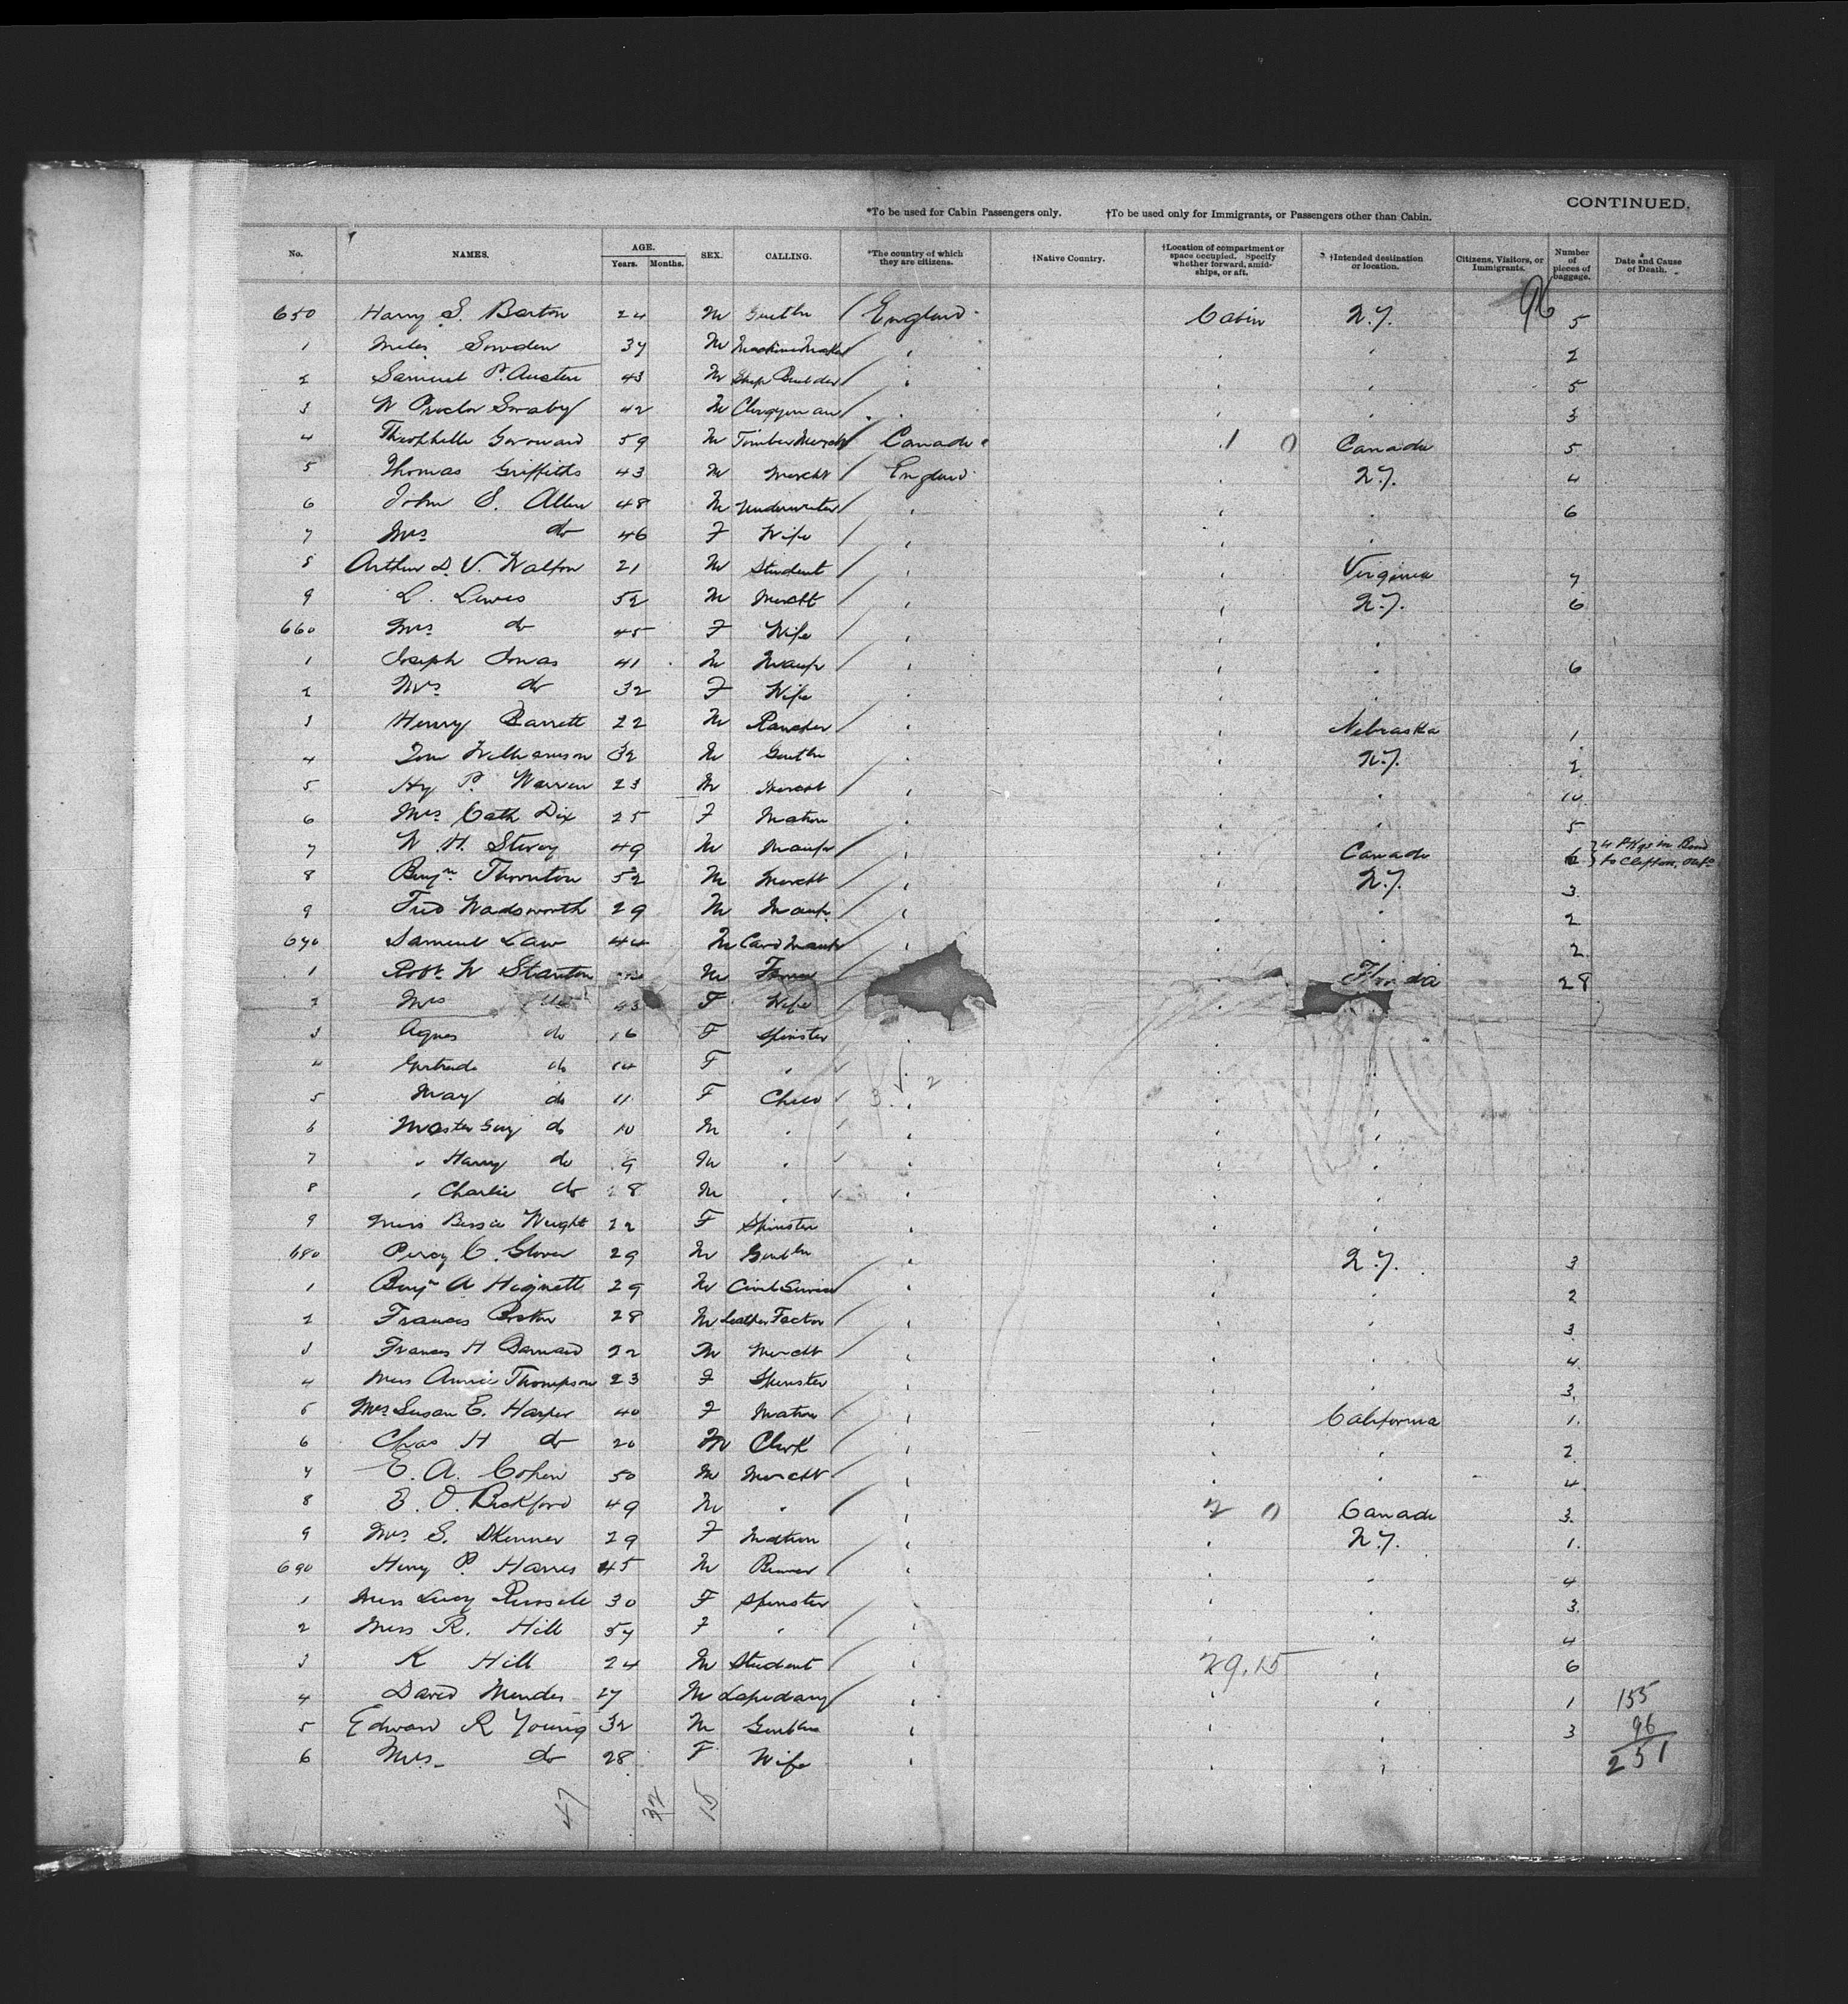 CONTINUED.
*To be used for Cabin Passengers only. †To be used only for Immigrants, or Passengers other than Cabin.
No. NAMES. AGE. Years. Months. SEX. CALLING. *The country of which they are citizens. †Native Country. †Location of compartment or space occupied. Specify whether forward, amidships, or aft. †Intended destination or location. Citizens, Visitors, or Immigrants. Number of pieces of baggage. Date and Cause of Death.
96
650 Harry S. Barton 24 M Gentln England Cabin N.Y. 5
1 Sowden 37 M Machine Maker " " " 2
2 Samuel P. Austin 43 M Ship Builder " " " 5
3 W Proctor Swaby 42 M Clergyman " " " 3
4 59 M Timber Mercht Canada 1 0 Canada 5
5 Thomas Griffiths 43 M Mercht England " N.Y. 4
6 John S. Allen 48 M Underwriter " " " 6
7 Mrs do 46 F Wife " " "
8 Arthur D. V. Walton 21 M Student " " Virginia 7
9 L. Lewis 52 M Mercht " " N.Y. 6
660 Mrs do 45 F Wife " " "
1 Joseph Jonas 41 M Manfr " " " 6
2 Mrs do 32 F Wife " " "
3 Henry Barrett 22 M Rancher " " Nebraska 1
4 Williamson 32 M Gentln " " N.Y. 2
5 Hy P. Warren 23 M Mercht " " " 10
6 Mrs Cath Dix 25 F Matron " " " 5
7 W. H. 49 M Manfr " " Canada 6 4 Pkgs in Bond to Clifton, Onto
8 Benjn Thornton 52 M Mercht " N.Y. 3
9 Fred Wadsworth 29 M Manfr " " " 2
670 Samuel Law 44 M Card Manfr " " " 2
1 Robt W Stanton M " Florida 28
2 Mrs do 43 F Wife "
3 Agnes do 16 F Spinster " "
4 Gertrude do 14 F " " " "
5 May do 11 F Child 3 2 " " "
6 Master Guy do 10 M " " " "
7 " Harry do 9 M " " " "
8 " Charlie do 8 M " " " "
9 Miss Bessie Wright 22 F Spinster " " "
680 Percy C. Glover 29 M Gentln " " N.Y. 3
1 Benjn A Hignett 29 M Civil Service " " " 2
2 Francis 28 M Leather Factor " " " 3
3 Francis H Barnard 22 M Mercht " " " 4
4 Miss Annie Thompson 23 F Spinster " " " 3
5 Mrs Susan E. Harper 40 F Matron " " California 1
6 Chas H do 20 M Clerk " " " 2
7 E. A. Cohen 50 M Mercht " " " 4
8 E. O. Bickford 49 M " " 2 0 Canada 3
9 Mrs S. Skinner 29 F Matron " " N.Y. 1
690 Henry P. Harris 45 M " " " 4
1 Miss Lucy 30 F Spinster " " 3
2 Miss R. Hill 57 F " " " " 4
3 K Hill 24 M Student " 29.15 " 6
4 David Mendes 27 M Lapidary " " " 1 155
5 Edward R Young 32 M Gentln " " " 3 96
6 Mrs do 28 F Wife " " " 251
47 32 15